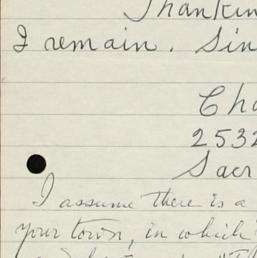 Thankin
I remain. Sin
Cha
2532
Sacr
I assume there is a
your town, in which